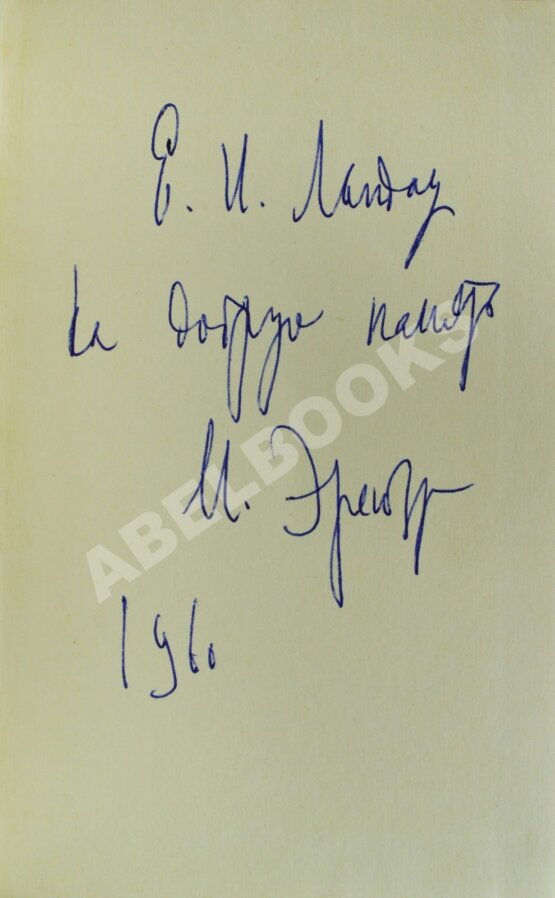 Е. И. Ландау
На добрую память
И. Эренбург
1960
ABELBOOKS